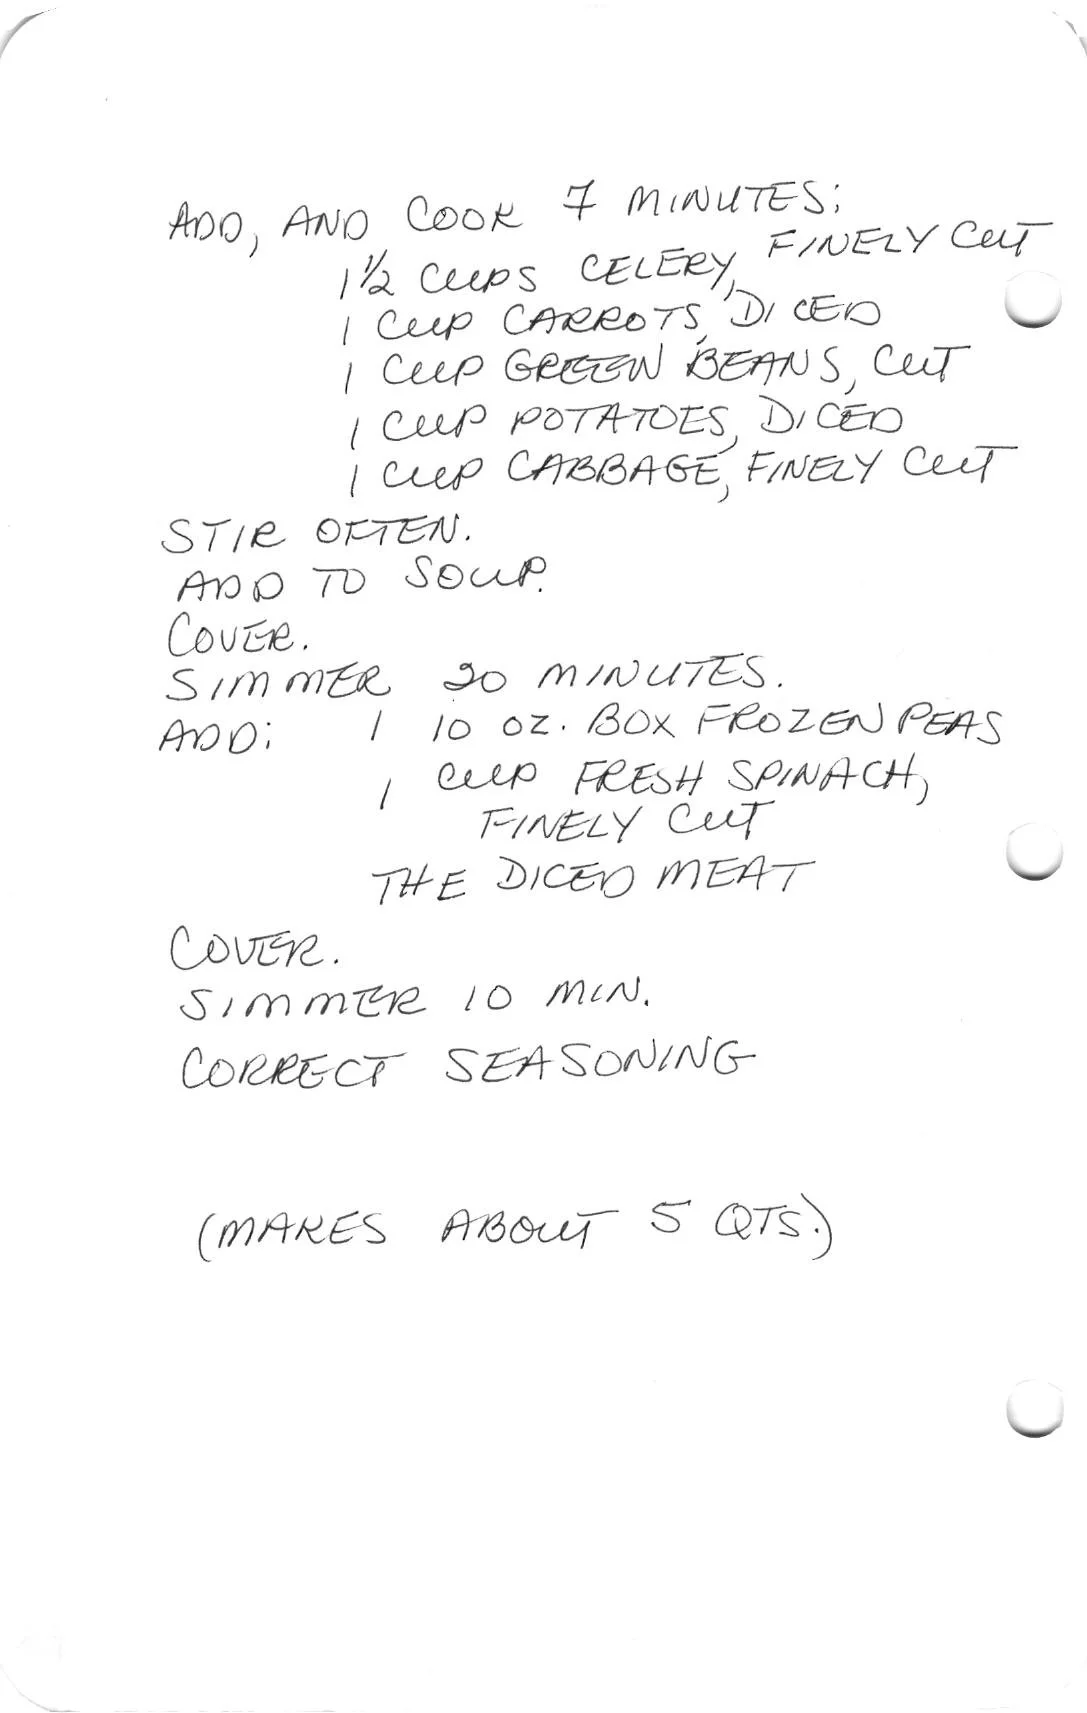 ADD, AND COOK 7 MINUTES:
1 1/2 CUPS CELERY, FINELY CUT
1 CUP CARROTS, DICED
1 CUP GREEN BEANS, CUT
1 CUP POTATOES, DICED
1 CUP CABBAGE, FINELY CUT
STIR OFTEN.
ADD TO SOUP.
COVER.
SIMMER 20 MINUTES.
ADD: 1 10 OZ. BOX FROZEN PEAS
1 CUP FRESH SPINACH,
FINELY CUT
THE DICED MEAT
COVER.
SIMMER 10 MIN.
CORRECT SEASONING
(MAKES ABOUT 5 QTS.)